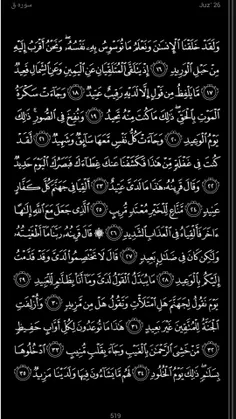 سورة ق
Juz' 26
وَلَقَدْ خَلَقْنَا ٱلْإِنسَٰنَ وَنَعْلَمُ مَا تُوَسْوِسُ بِهِۦ نَفْسُهُۥ ۖ وَنَحْنُ أَقْرَبُ إِلَيْهِ
مِنْ حَبْلِ ٱلْوَرِيدِ ١٦ إِذْ يَتَلَقَّى ٱلْمُتَلَقِّيَانِ عَنِ ٱلْيَمِينِ وَعَنِ ٱلشِّمَالِ قَعِيدٌ
١٧ مَّا يَلْفِظُ مِن قَوْلٍ إِلَّا لَدَيْهِ رَقِيبٌ عَتِيدٌ ١٨ وَجَآءَتْ سَكْرَةُ
ٱلْمَوْتِ بِٱلْحَقِّ ۖ ذَٰلِكَ مَا كُنتَ مِنْهُ تَحِيدُ ١٩ وَنُفِخَ فِى ٱلصُّورِ ۚ ذَٰلِكَ
يَوْمُ ٱلْوَعِيدِ ٢٠ وَجَآءَتْ كُلُّ نَفْسٍ مَّعَهَا سَآئِقٌ وَشَهِيدٌ ٢١ لَّقَدْ
كُنتَ فِى غَفْلَةٍ مِّنْ هَٰذَا فَكَشَفْنَا عَنكَ غِطَآءَكَ فَبَصَرُكَ ٱلْيَوْمَ حَدِيدٌ
٢٢ وَقَالَ قَرِينُهُۥ هَٰذَا مَا لَدَىَّ عَتِيدٌ ٢٣ أَلْقِيَا فِى جَهَنَّمَ كُلَّ كَفَّارٍ
عَنِيدٍ ٢٤ مَّنَّاعٍ لِّلْخَيْرِ مُعْتَدٍ مُّرِيبٍ ٢٥ ٱلَّذِى جَعَلَ مَعَ ٱللَّهِ إِلَٰهًا
ءَاخَرَ فَأَلْقِيَاهُ فِى ٱلْعَذَابِ ٱلشَّدِيدِ ٢٦ ۞ قَالَ قَرِينُهُۥ رَبَّنَا مَآ أَطْغَيْتُهُۥ
وَلَٰكِن كَانَ فِى ضَلَٰلٍۭ بَعِيدٍ ٢٧ قَالَ لَا تَخْتَصِمُوا۟ لَدَىَّ وَقَدْ قَدَّمْتُ
إِلَيْكُم بِٱلْوَعِيدِ ٢٨ مَا يُبَدَّلُ ٱلْقَوْلُ لَدَىَّ وَمَآ أَنَا۠ بِظَلَّٰمٍ لِّلْعَبِيدِ ٢٩
يَوْمَ نَقُولُ لِجَهَنَّمَ هَلِ ٱمْتَلَأْتِ وَتَقُولُ هَلْ مِن مَّزِيدٍ ٣٠ وَأُزْلِفَتِ
ٱلْجَنَّةُ لِلْمُتَّقِينَ غَيْرَ بَعِيدٍ ٣١ هَٰذَا مَا تُوعَدُونَ لِكُلِّ أَوَّابٍ حَفِيظٍ
٣٢ مَّنْ خَشِىَ ٱلرَّحْمَٰنَ بِٱلْغَيْبِ وَجَآءَ بِقَلْبٍ مُّنِيبٍ ٣٣ ٱدْخُلُوهَا
بِسَلَٰمٍ ۖ ذَٰلِكَ يَوْمُ ٱلْخُلُودِ ٣٤ لَهُم مَّا يَشَآءُونَ فِيهَا وَلَدَيْنَا مَزِيدٌ ٣٥
519